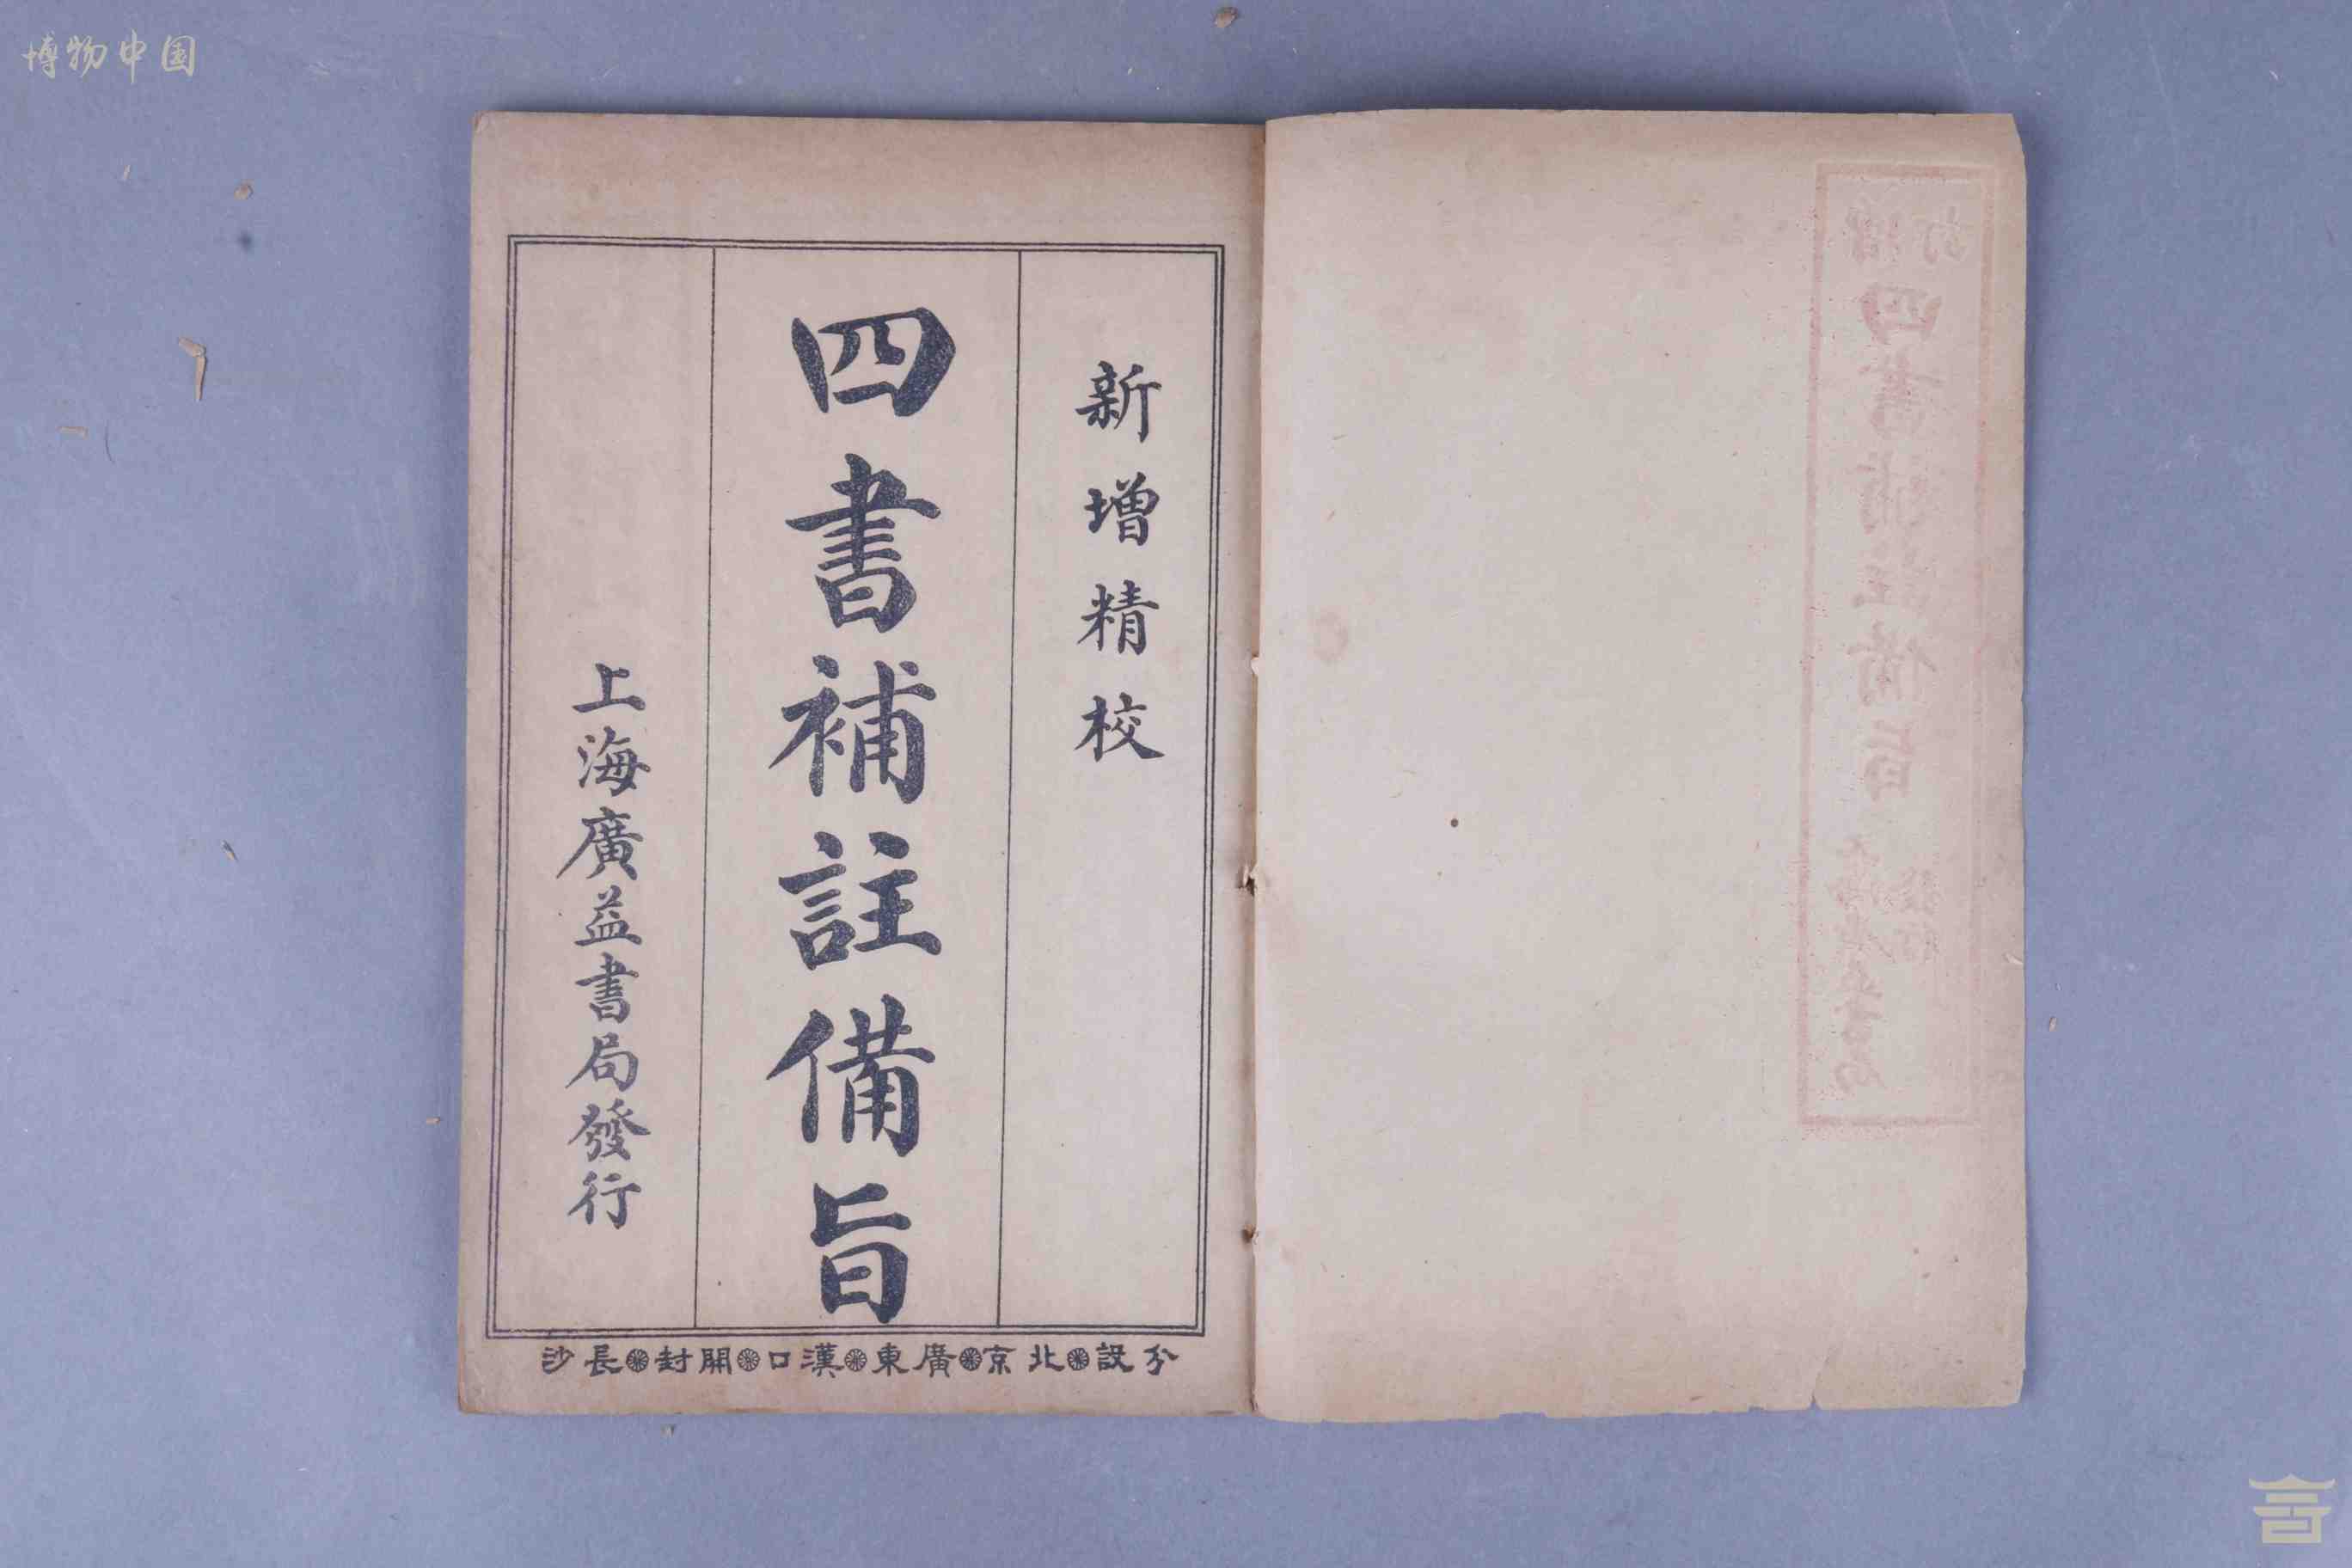 博物中国
新增精校
四書補註備旨
上海廣益書局發行
分設北京廣東漢口開封長沙
四書補註備旨